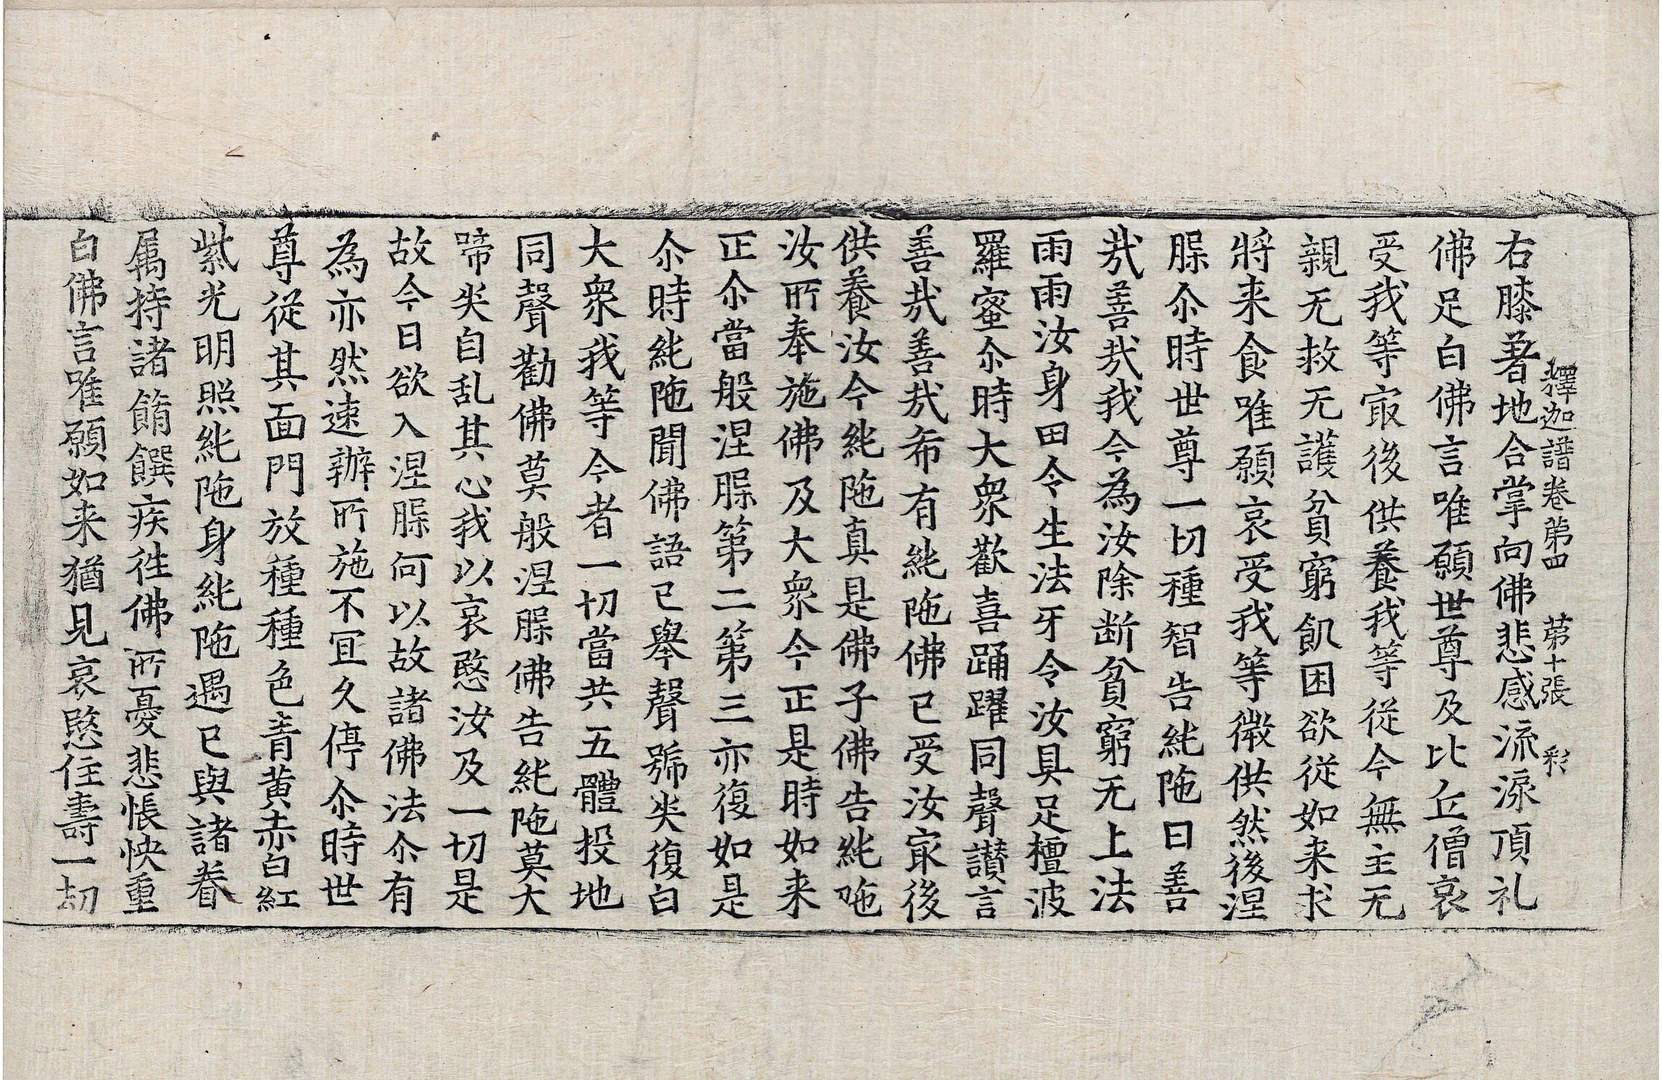 釋迦譜卷第四 第十張 彩
右膝著地合掌向佛悲感流淚頂礼
佛足白佛言唯願世尊及比丘僧哀
受我等㝡後供養我等從今無主无
親无救无護貧窮飢困欲從如来求
將来食唯願哀受我等微供然後涅
𦙷尒時世尊一切種智告純陁曰善
㢤善㢤我今為汝除断貧窮无上法
雨雨汝身田令生法牙令汝具足檀波
羅蜜尒時大衆歡喜踊躍同聲讃言
善㢤善㢤希有純陁佛已受汝㝡後
供養汝今純陁真是佛子佛告純陁
汝所奉施佛及大衆今正是時如来
正尒當般涅𦙷第二第三亦復如是
尒時純陁聞佛語已舉聲號哭復白
大衆我等今者一切當共五體投地
同聲勸佛莫般涅𦙷佛告純陁莫大
啼哭自乱其心我以哀愍汝及一切是
故今日欲入涅𦙷何以故諸佛法尒有
為亦然速辦所施不冝久停尒時世
尊從其面門放種種色青黄赤白紅
紫光明照純陁身純陁遇已與諸眷
属持諸餚饌疾徃佛所憂悲悵怏重
白佛言唯願如来猶見哀愍住壽一劫